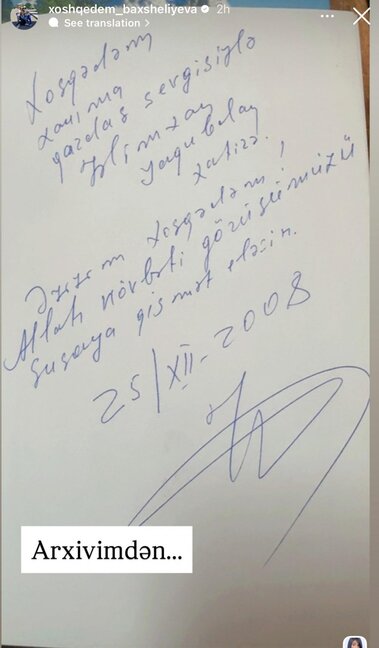 xoshqedem_baxsheliyeva 2h
See translation >
Xoşqədəm
xanıma
qardaş sevgisiylə
Əlimxan
Yaqubdan
xatirə.
Əzizim Xoşqədəm!
Allah növbəti görüşümüzü
Şuşaya qismət eləsin.
25/XII-2008
Arxivimdən...